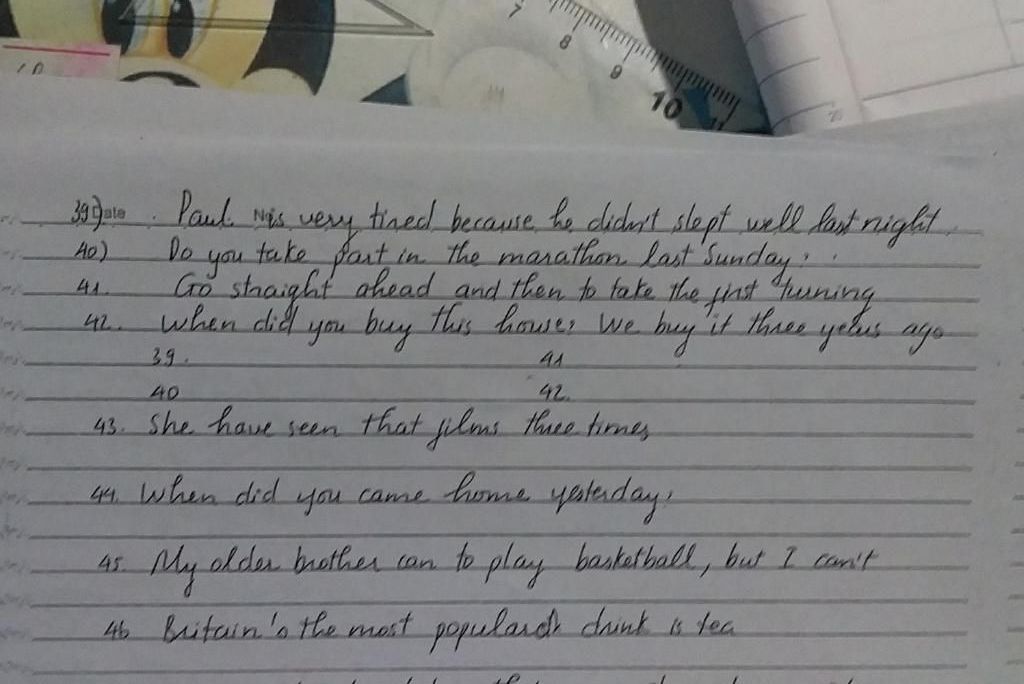 7
8
9
10
11
39) Date . Paul No is very tired because he didn't slept well last night.
40) Do you take part in the marathon last Sunday?
41. Go straight ahead and then to take the first turning
42. When did you buy this house? We buy it three years ago
39. 41
40 42.
43. She have seen that films three times
44. When did you came home yesterday?
45. My older brother can to play basketball, but I can't
46 Britain's the most popular drink is tea